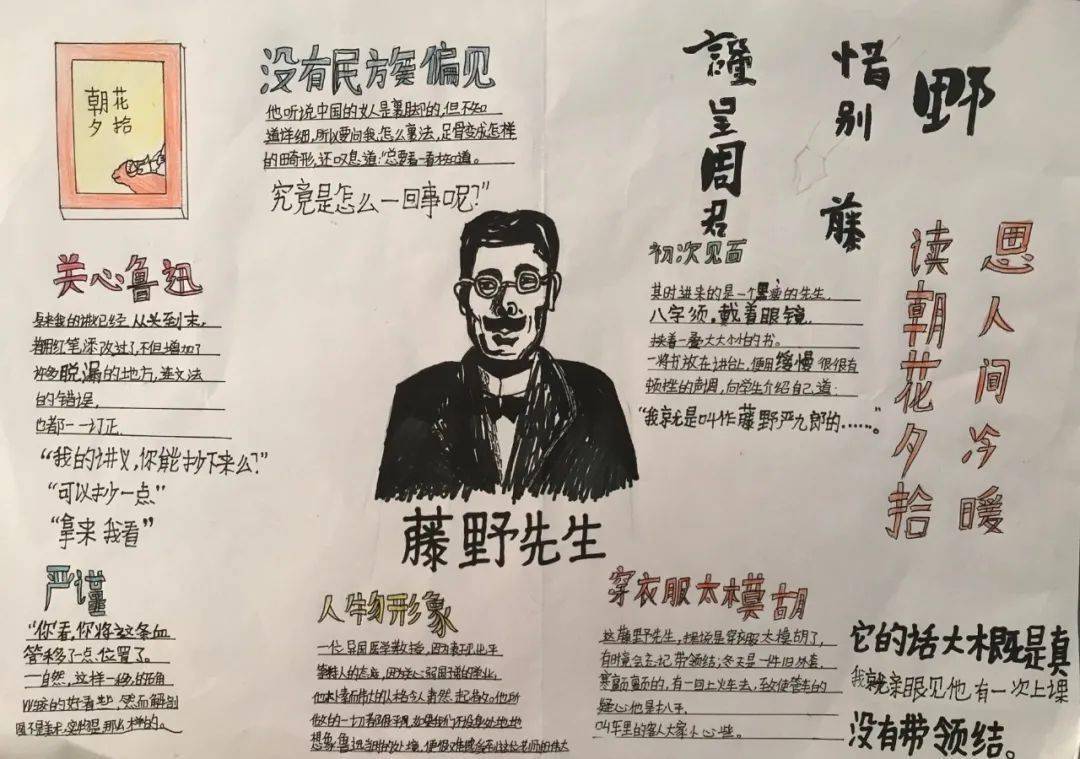 朝花
夕拾
没有民族偏见
他听说中国的女人是裹脚的,但不知
道详细,所以要问我怎么裹法,足骨变成怎样
的畸形,还叹息道:“总要看一看才知道。
究竟是怎么一回事呢?”
謹呈周君
惜别
藤
野
初次见面
其时进来的是一个黑瘦的先生,
八字须,戴着眼镜,
挟着一叠大大小小的书。
一将书放在讲台上,便用缓慢很很有
顿挫的声调,向学生介绍自己道:
“我就是叫作藤野严九郎的……”。
读朝花夕拾
思人间冷暖
关心鲁迅
原来我的讲义已经从头到末,
都用红笔添改过了,不但增加了
许多脱漏的地方,连文法
的错误,
也都一一订正
“我的讲义,你能抄下来么?”
“可以抄一点”
“拿来我看”
藤野先生
严谨
“你看,你将这条血
管移了一点位置了。
一自然,这样一移,的确
比较的好看些,然而解剖
图不是美术,实物是那么样的。
人物形象
一位异国医学教授,因为表现出平
等待人的态度,因为关心弱国子民的学业,
他朴素而伟大的人格令人肃然起敬。他所
做的一切都很平凡,如果我们不设身处地地
想象鲁迅当时的处境,便很难感受到这位老师的伟大
穿衣服太模胡
这藤野先生,据说是穿衣服太模胡了,
有时竟会忘记带领结;冬天是一件旧外套,
寒颤颤的,有一回上火车去,致使管车的
疑心他是扒手,
叫车里的客人大家小心些。
它的话大概是真
我就亲眼见他有一次上课
没有带领结。